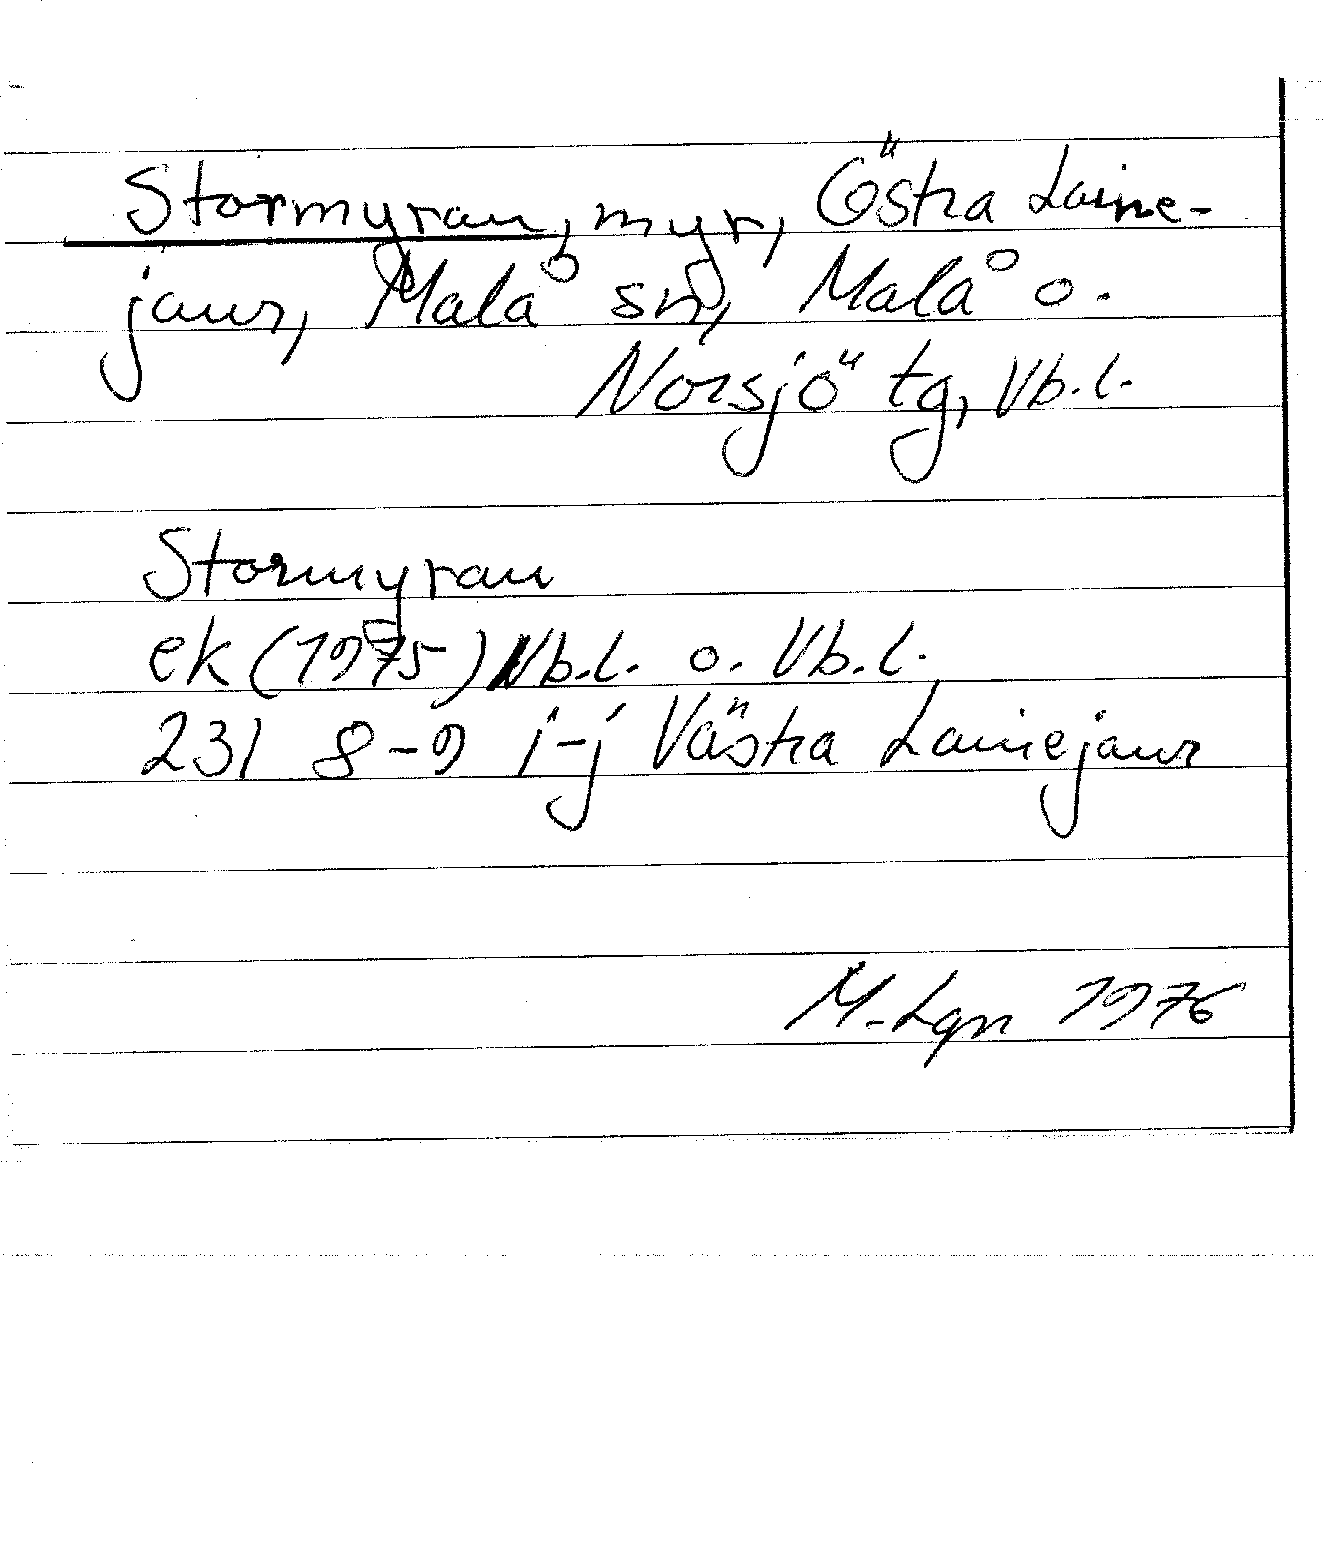 Stormyran, myr, Östra Laine-
jaur, Malå sn, Malå o.
Norsjö tg, Vb.l.
Stormyran
ek (1975) Nb.l. o. Vb.l.
231 8-9 i-j Västra Lainejaur
M. Lgn 1976